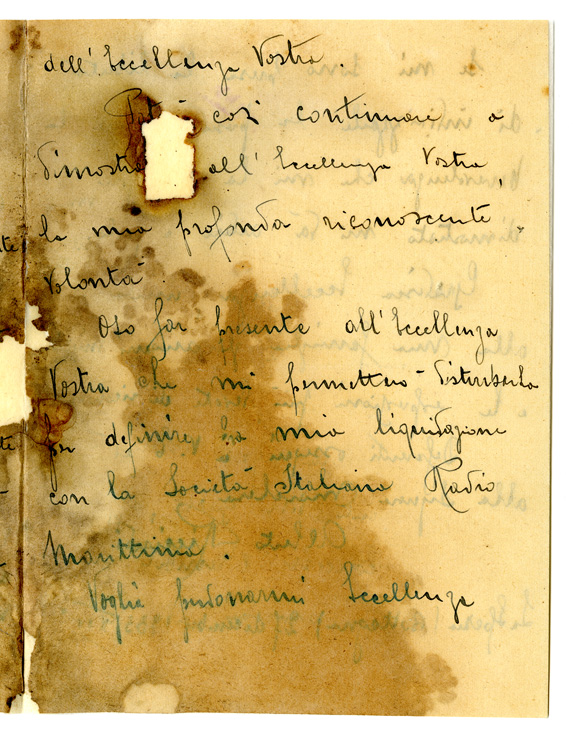 dell'Eccellenza Vostra.
così continuare a
dimostra all'Eccellenza Vostra,
la mia profonda riconoscente
volontà.
Oso far presente all'Eccellenza
Vostra che mi permetterò disturbarla
per definire la mia liquidazione
con la Società Italiana Radio
Marittima.
Voglia perdonarmi Eccellenza